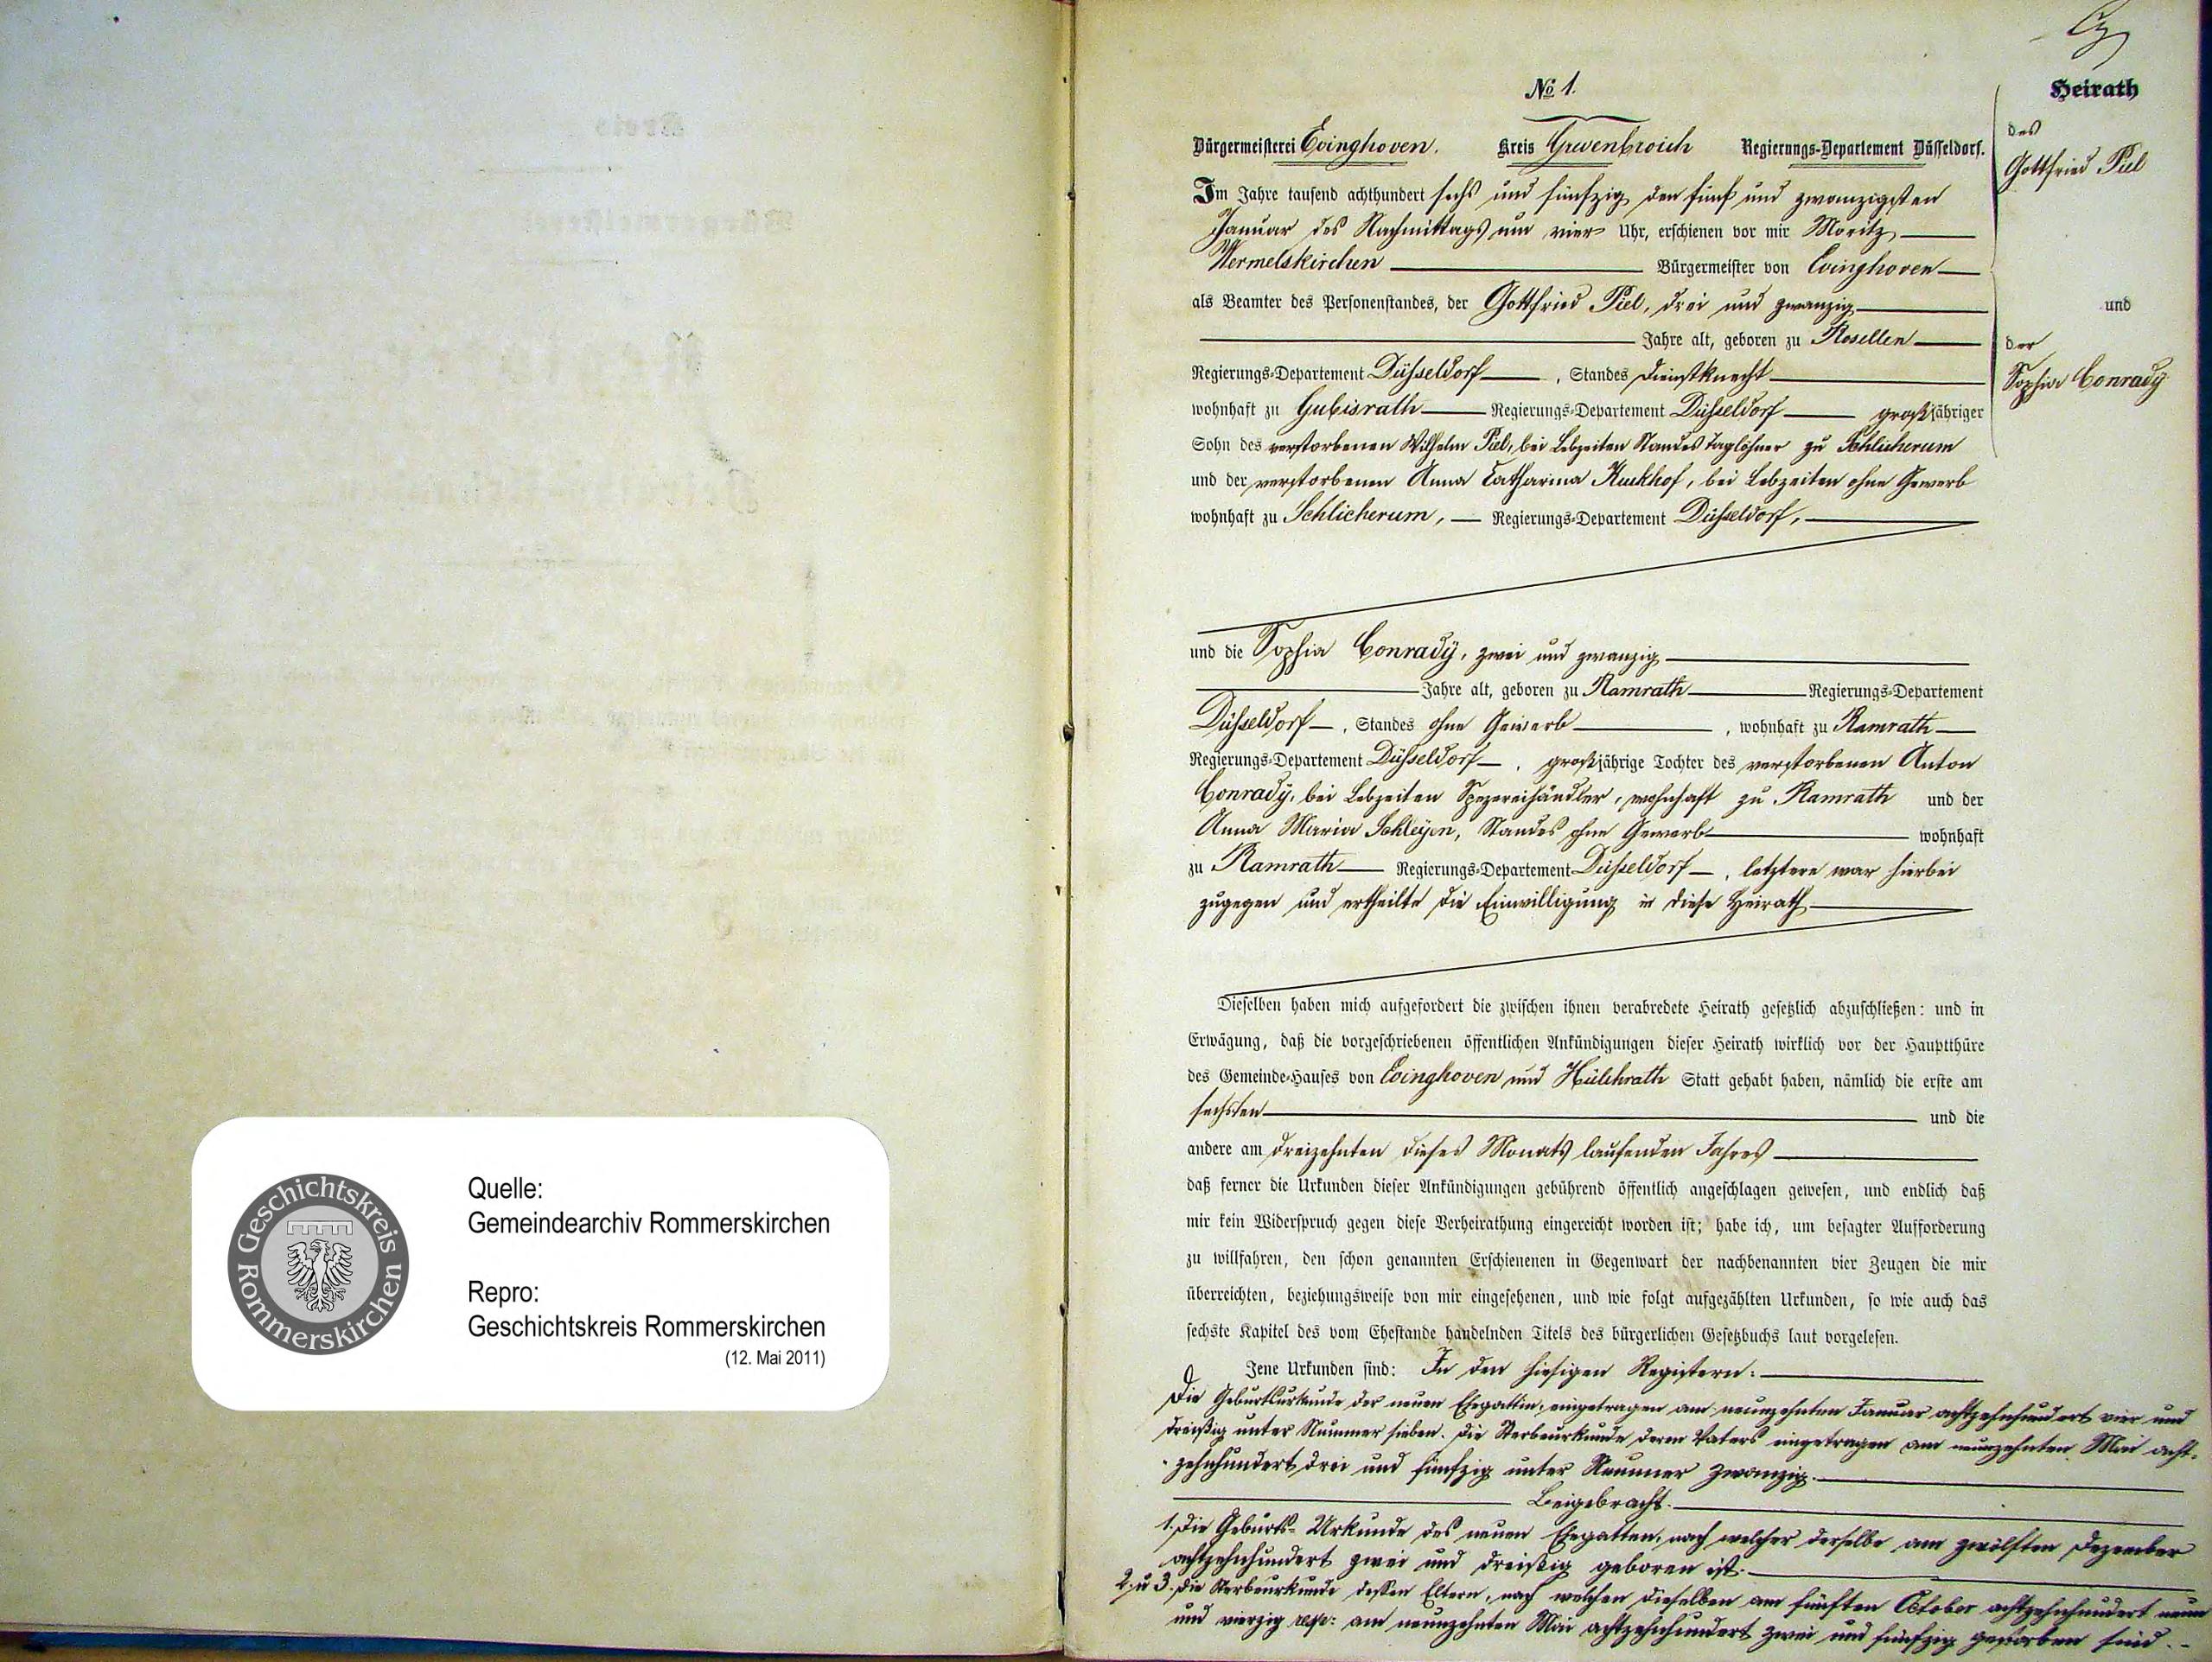 Geschichtskreis Rommerskirchen
Quelle:
Gemeindearchiv Rommerskirchen
Repro:
Geschichtskreis Rommerskirchen
(12. Mai 2011)
No 1.
Bürgermeisterei Evinghoven. Kreis Grevenbroich Regierungs-Departement Düsseldorf.
Im Jahre tausend achthundert sechs und fünfzig den fünf und zwanzigsten
Januar des Nachmittags um vier Uhr, erschienen vor mir Moritz
Wermelskirchen Bürgermeister von Evinghoven
als Beamter des Personenstandes, der Gottfried Piel, drei und zwanzig
Jahre alt, geboren zu Rosellen
Regierungs-Departement Düsseldorf, Standes Dienstknecht
wohnhaft zu Gubisrath Regierungs-Departement Düsseldorf großjähriger
Sohn des verstorbenen Wilhelm Piel, bei Lebzeiten Standes Taglöhner zu Schlicherum
und der verstorbenen Anna Catharina Kuckhof, bei Lebzeiten ohne Gewerb
wohnhaft zu Schlicherum, Regierungs-Departement Düsseldorf,
und die Sophia Conrady, zwei und zwanzig
Jahre alt, geboren zu Ramrath Regierungs-Departement
Düsseldorf, Standes ohne Gewerb, wohnhaft zu Ramrath
Regierungs-Departement Düsseldorf, großjährige Tochter des verstorbenen Anton
Conrady, bei Lebzeiten Spezereihändler, wohnhaft zu Ramrath und der
Anna Maria Schleyen, Standes ohne Gewerb wohnhaft
zu Ramrath Regierungs-Departement Düsseldorf, letztere war hierbei
zugegen und ertheilte die Einwilligung in diese Heirath
Dieselben haben mich aufgefordert die zwischen ihnen verabredete Heirath gesetzlich abzuschließen: und in
Erwägung, daß die vorgeschriebenen öffentlichen Ankündigungen dieser Heirath wirklich vor der Hauptthüre
des Gemeinde-Hauses von Evinghoven und Hülchrath Statt gehabt haben, nämlich die erste am
sechsten und die
andere am dreizehnten dieses Monats laufenden Jahres
daß ferner die Urkunden dieser Ankündigungen gebührend öffentlich angeschlagen gewesen, und endlich daß
mir kein Widerspruch gegen diese Verheirathung eingereicht worden ist; habe ich, um besagter Aufforderung
zu willfahren, den schon genannten Erschienenen in Gegenwart der nachbenannten vier Zeugen die mir
überreichten, beziehungsweise von mir eingesehenen, und wie folgt aufgezählten Urkunden, so wie auch das
sechste Kapitel des vom Ehestande handelnden Titels des bürgerlichen Gesetzbuchs laut vorgelesen.
Jene Urkunden sind: In den hiesigen Registern:
Die Geburtsurkunde der neuen Ehegattin, eingetragen am neunzehnten Januar achtzehnhundert vier und
dreißig unter Nummer sieben. Die Sterbeurkunde deren Vaters eingetragen am neunzehnten Mai acht-
zehnhundert drei und fünfzig unter Nummer zwanzig.
Beigebracht.
1. Die Geburts-Urkunde des neuen Ehegatten, nach welcher derselbe am zwölften Dezember
achtzehnhundert zwei und dreißig geboren ist.
2. u 3. Die Sterbeurkunde dessen Eltern, nach welchen dieselben am fünften October achtzehnhundert neun
und vierzig resp: am neunzehnten Mai achtzehnhundert zwei und fünfzig gestorben sind.
Heirath
des
Gottfried Piel
und
der
Sophia Conrady